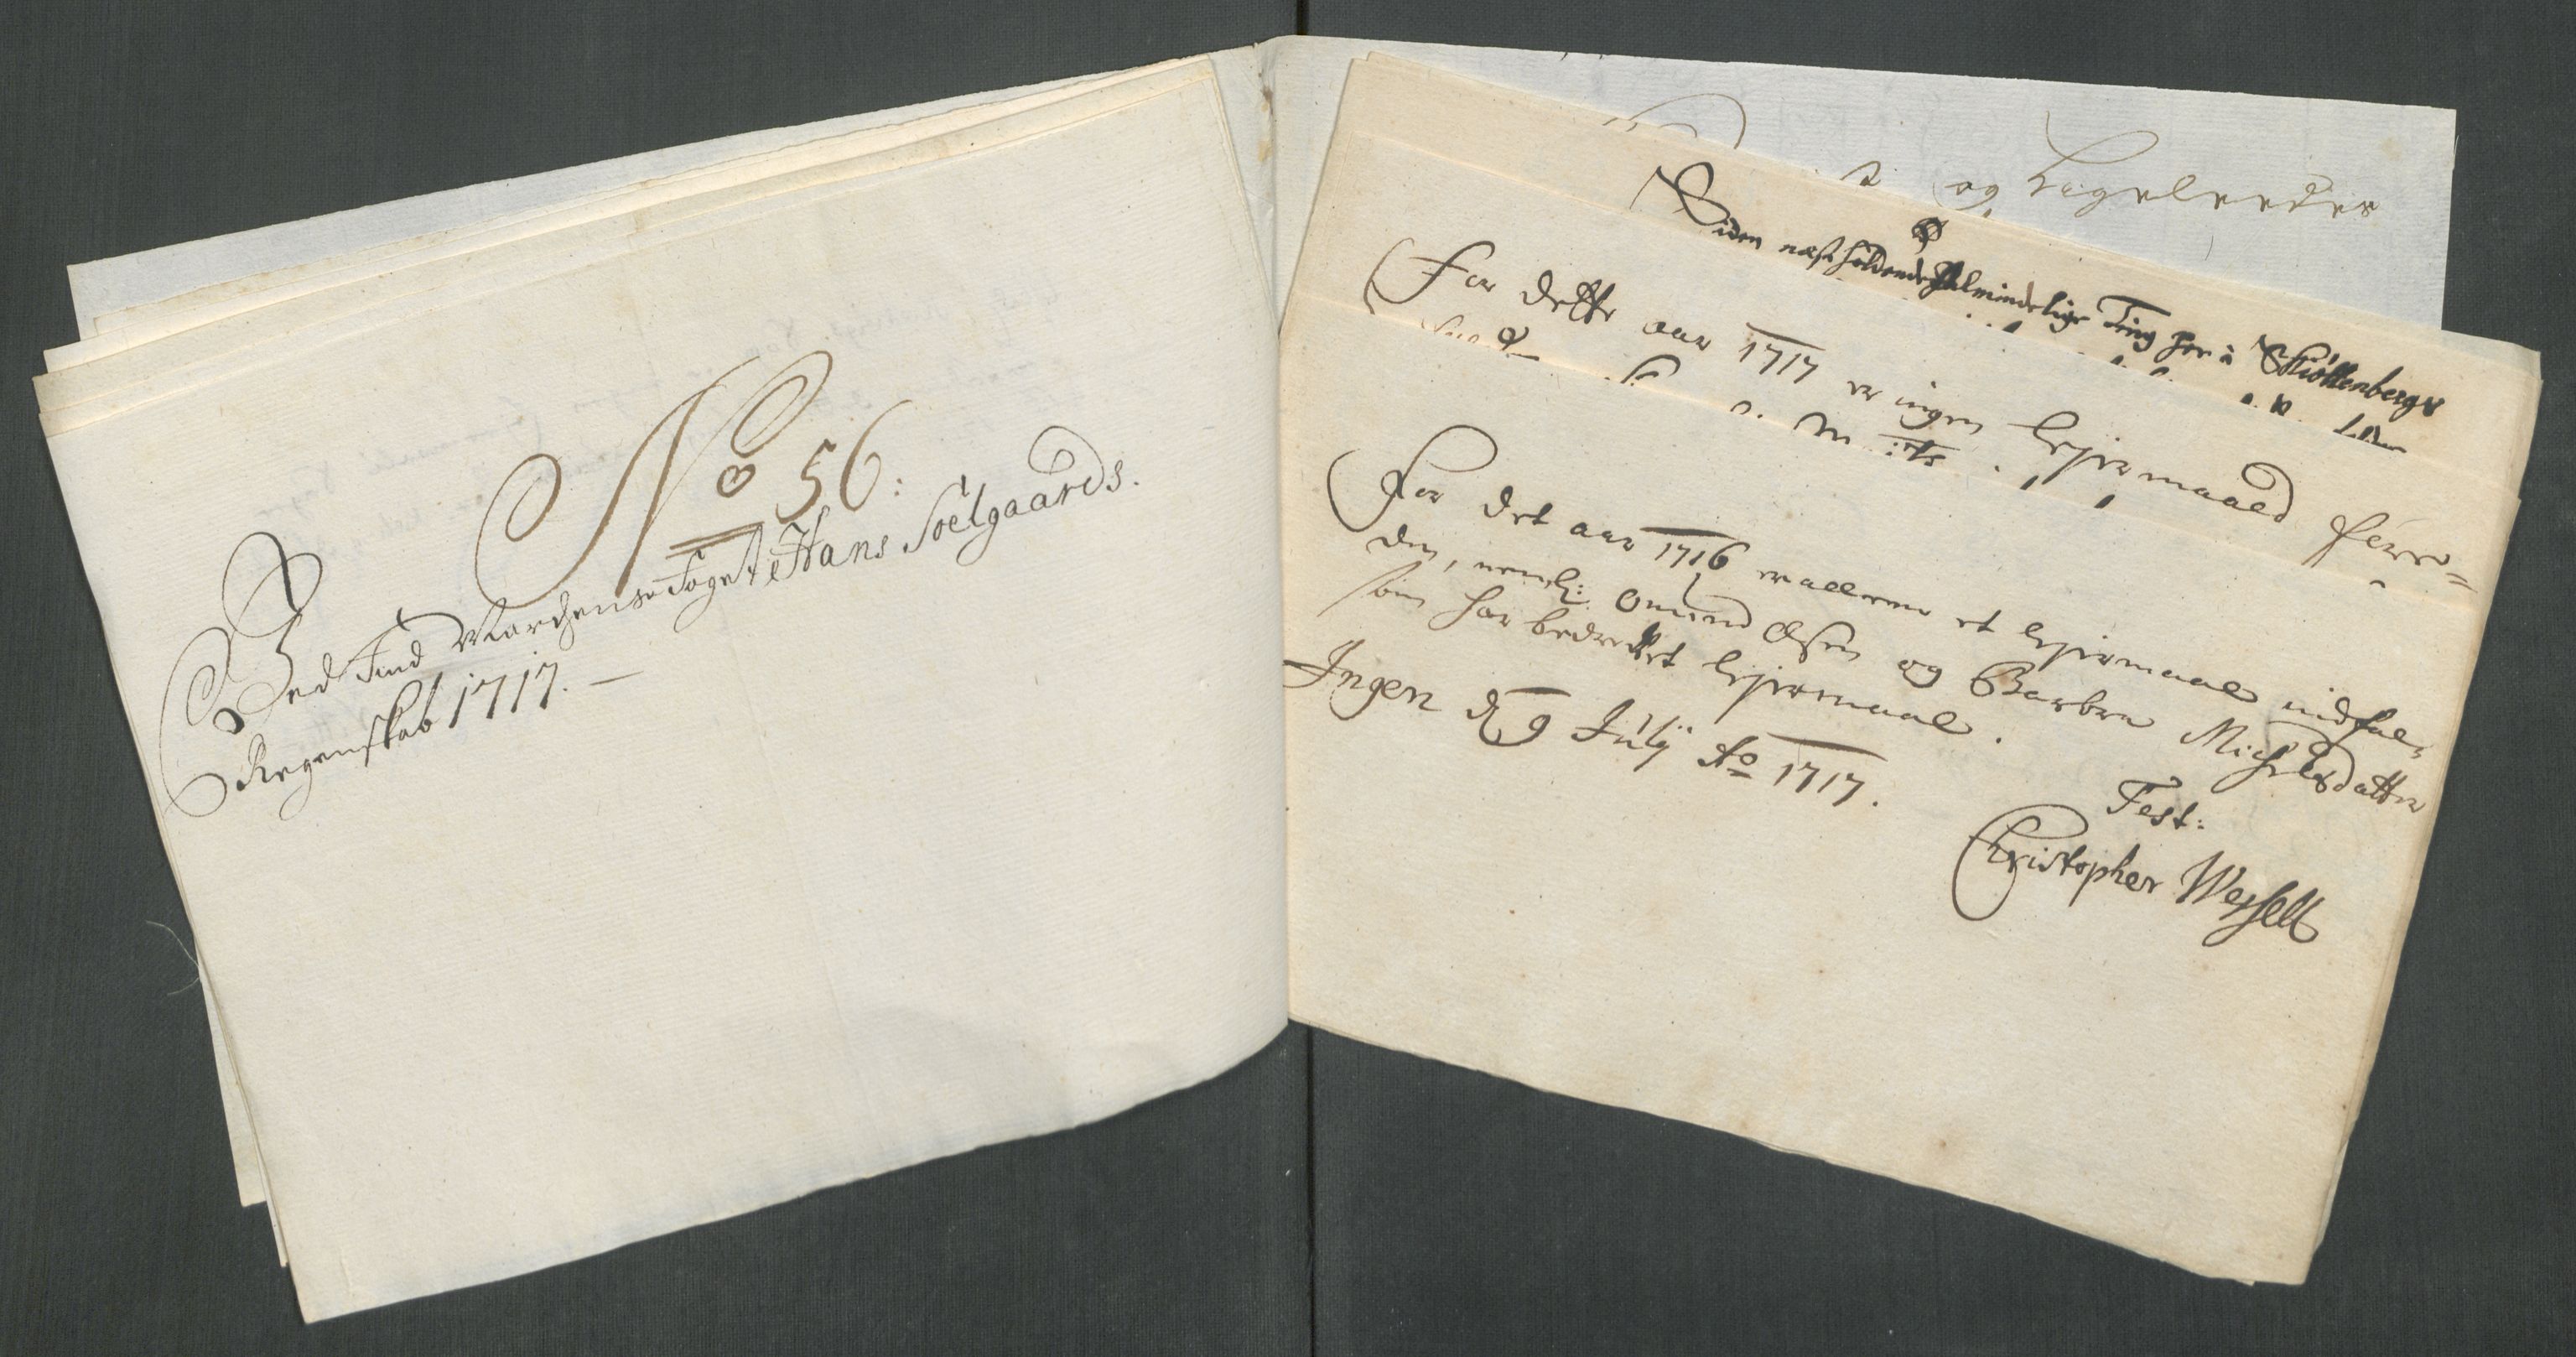 No 56:
Ved Find Marchens Foget Hans Soelgaards.
Regenskab 1717. —
og Ligeleedes
Siden næst holdende Almindelige Ting her å Skiøttenbergs
For dette aar 1717 er ingen lejermaaed
For det aar 1716 er alleene et lejermaael indfal-
den, neml: Omund Olsen og Barbra Michelsdatter
som har bedrevet lejermaael.
Ingen d 9 Julÿ Ao 1717.
Test:
Christopher Wessell